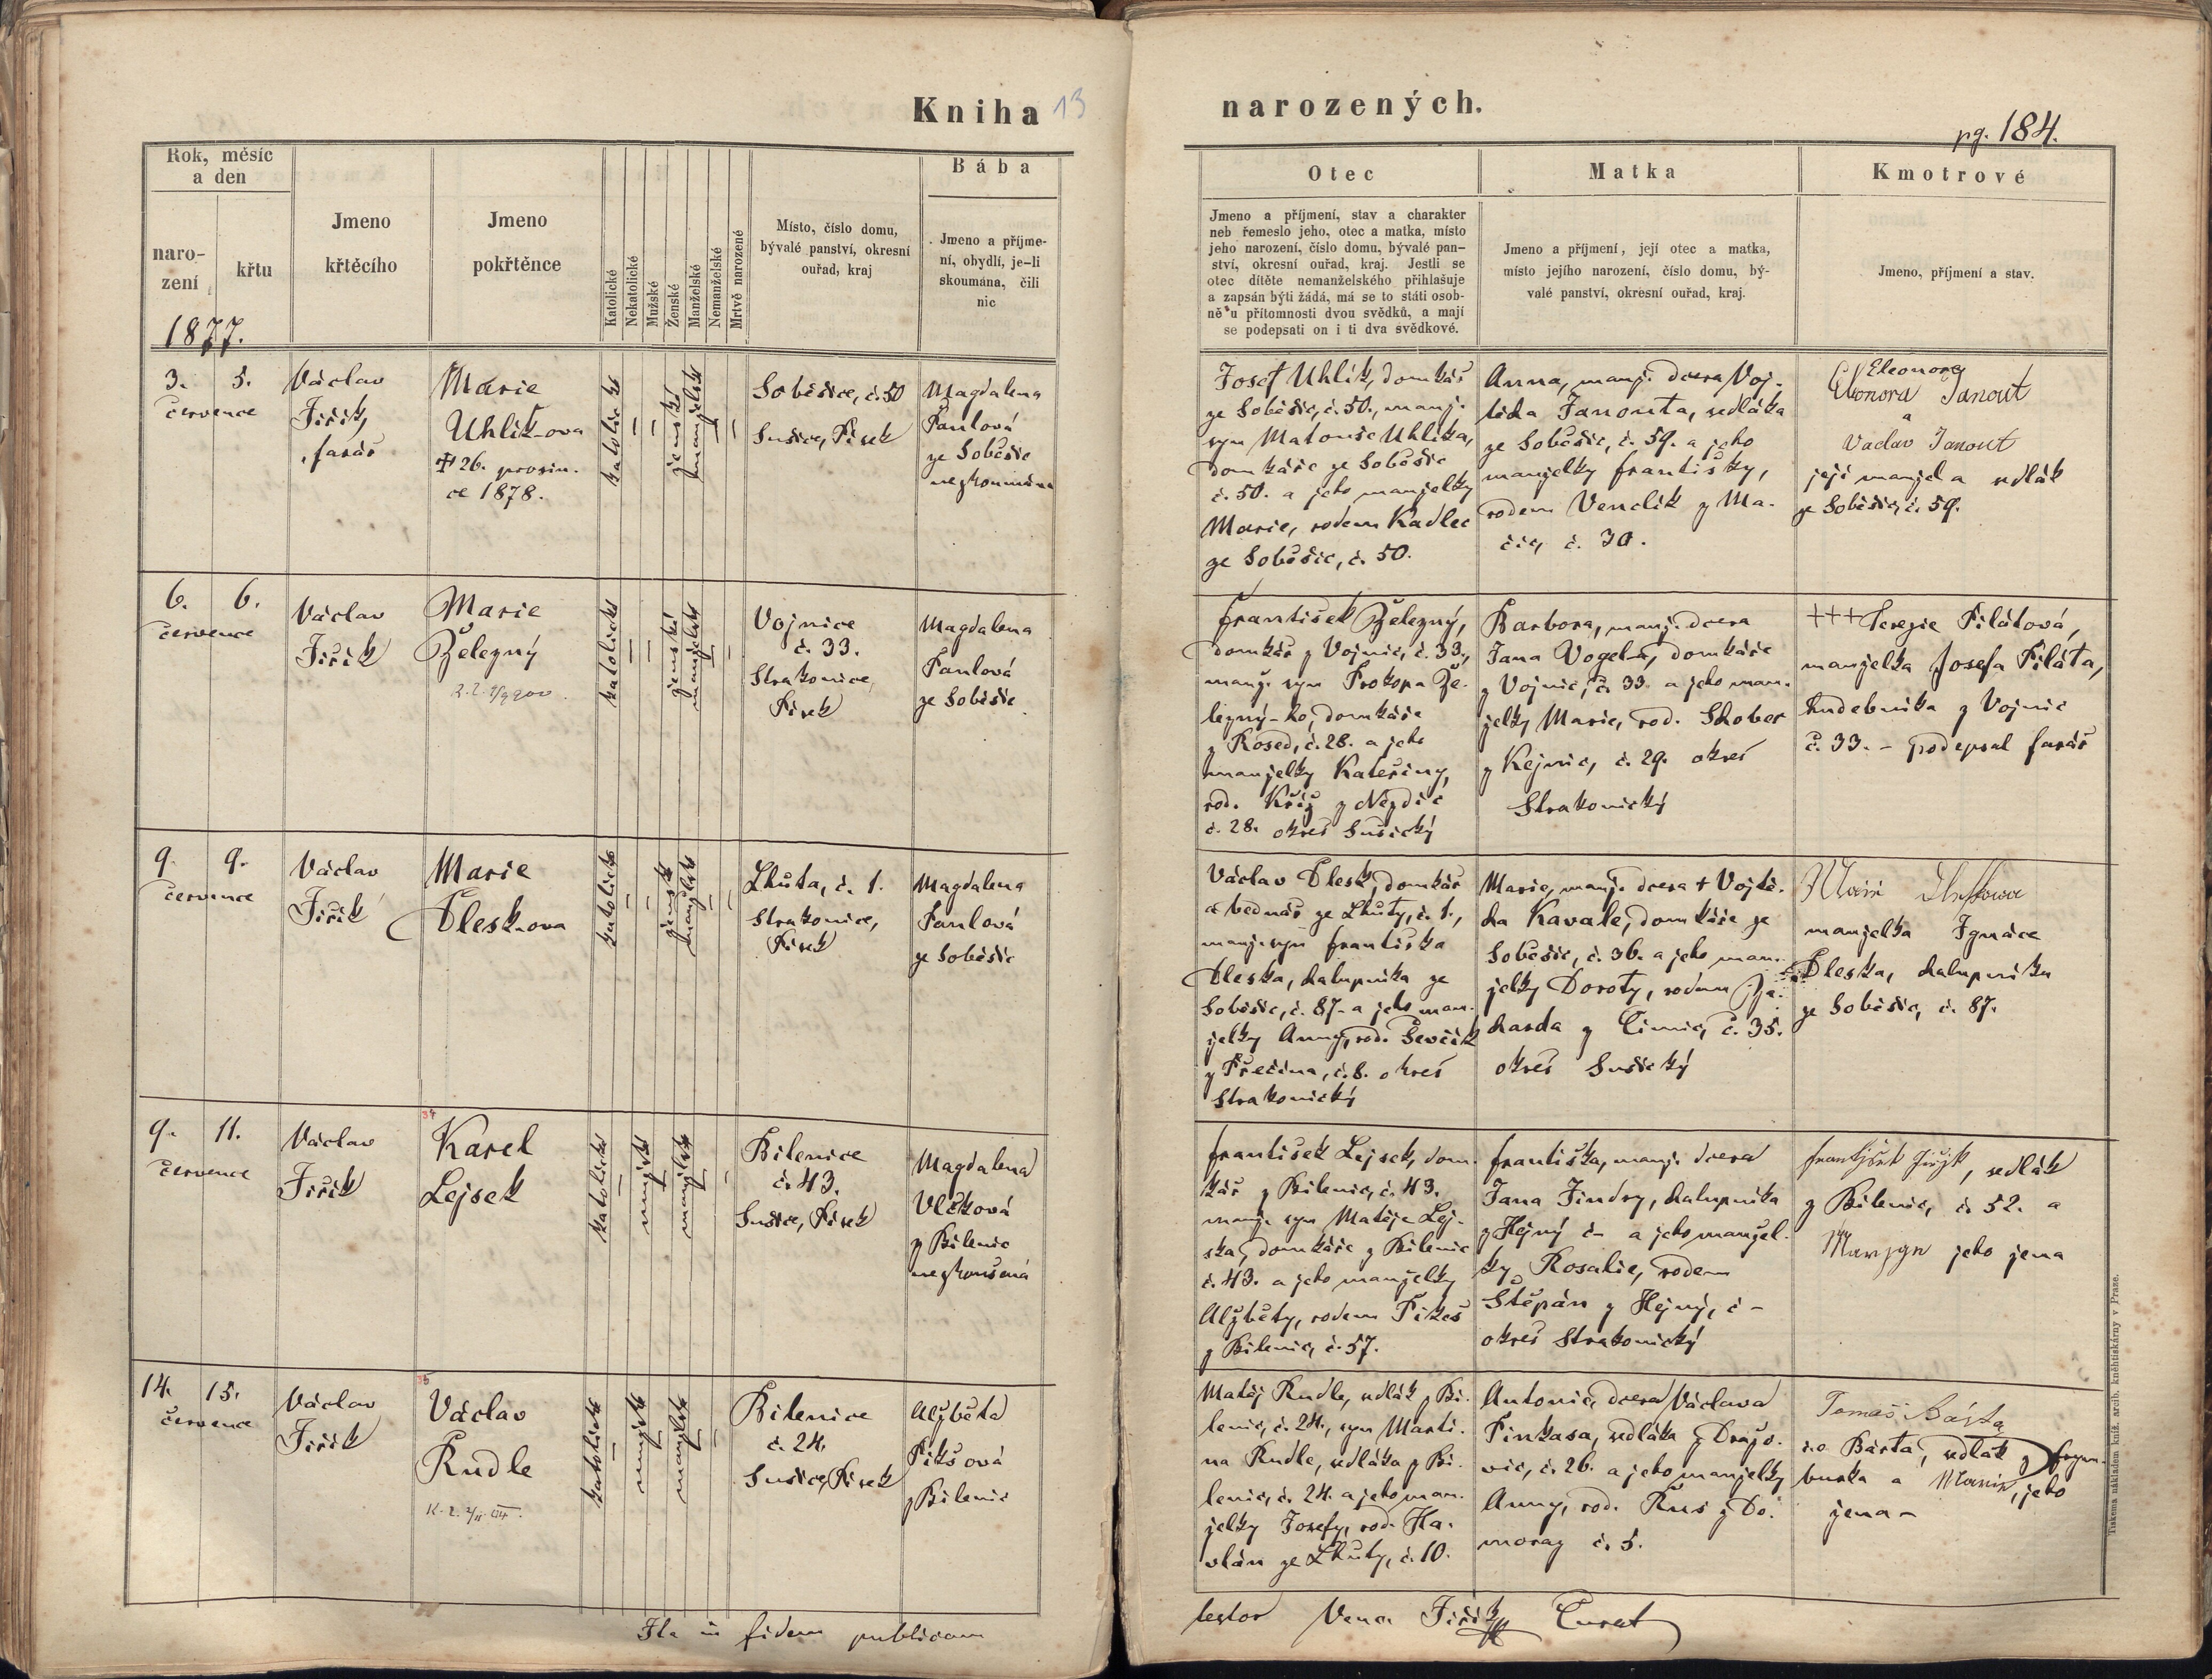 Kniha 13
narozených.
pg. 184.
Rok, měsíc
a den
naro-
zení
křtu
Jmeno
křtěcího
Jmeno
pokřtěnce
Katolické
Nekatolické
Mužské
Ženské
Manželské
Nemanželské
Mrtvě narozené
Místo, číslo domu,
bývalé panství, okresní
ouřad, kraj
Bába
Jmeno a příjme-
ní, obydlí, je-li
skoumána, čili
nic
Otec
Jmeno a příjmení, stav a charakter
neb řemeslo jeho, otec a matka, místo
jeho narození, číslo domu, bývalé pan-
ství, okresní ouřad, kraj. Jestli se
otec dítěte nemanželského přihlašuje
a zapsán býti žádá, má se to státi osob-
ně u přítomnosti dvou svědků, a mají
se podepsati on i ti dva svědkové.
Matka
Jmeno a příjmení, její otec a matka,
místo jejího narození, číslo domu, bý-
valé panství, okresní ouřad, kraj.
Kmotrové
Jmeno, příjmení a stav.
1877.
3. 5.
července
Václav
Jiřík,
farář
Marie
Uhlík-ova
26. prosin.
ce 1878.
katolické
ženské
manželské
Soběšice, č. 50
Sušice, Písek
Magdalena
Pavlová
ze Soběšic
nezkoumána
Josef Uhlík, domkář
ze Soběšic, č. 50., manž.
syn Matouše Uhlíka,
domkáře ze Soběšic
č. 50. a jeho manželky
Marie, rodem Kadlec
ze Soběšic, č. 50.
Anna, manž. dcera Voj-
těcha Janouta, sedláka
ze Soběšic, č. 59. a jeho
manželky Františky,
rodem Venclík z Ma-
čic, č. 30.
Eleonora
Eleonora Janout
a
Vaclav Janout
její manžel a sedlák
ze Soběšic, č. 59.
6. 6.
července
Václav
Jiřík
Marie
Železný
katolické
ženské
manželské
Vojnice
č. 33.
Strakonice,
Písek
Magdalena
Pavlová
ze Soběšic
František Železný,
domkář z Vojnic, č. 33.,
manž. syn Prokopa Že-
lezný-ho, domkáře
z Rosed, č. 28. a jeho
manželky Kateřiny,
rod. Kříž z Nezdic
č. 28. okres Sušický
Barbora, manž. dcera
Jana Vogel-a, domkáře
z Vojnic, č. 33. a jeho man-
želky Marie, rod. Schober
z Kejnic, č. 29. okres
Strakonický
+++ Terezie Pilátová,
manželka Josefa Piláta,
hudebníka z Vojnic
č. 33. - podepsal farář
9. 9.
července
Václav
Jiřík
Marie
Plesk-ova
katolické
ženské
manželské
Lhuta, č. 1.
Strakonice,
Písek
Magdalena
Pavlová
ze Soběšic
Václav Plesk, domkář
a bednář ze Lhuty, č. 1.,
manž. syn Františka
Pleska, chalupníka ze
Soběšic, č. 87. a jeho man-
želky Anny, rod. Ševčík
z Přečína, č. 8. okres
Strakonický
Marie, manž. dcera + Vojtě-
cha Kavale, domkáře ze
Soběšic, č. 36. a jeho man-
želky Doroty, rodem
harda z Čimic, č. 35.
okres Sušický
manželka Ignáce
Pleska, chalupníka
ze Soběšic, č. 87.
9. 11.
července
Václav
Jiřík
Karel
Lejsek
katolické
mužské
manželské
Bílenice
č. 43.
Sušice, Písek
Magdalena
Vlčková
z Bílenic
nezkoušená
František Lejsek, dom-
kář z Bílenic, č. 43.
manž. syn Matěje Lej-
ska, domkáře z Bílenic
č. 43. a jeho manželky
Alžběty, rodem Fikeš
z Bílenic, č. 57.
Františka, manž. dcera
Jana Jindry, chalupníka
z Hejný č - a jeho manžel-
ky Rosalie, rodem
Štěpán z Hejný, č -
okres Strakonický
Frantjšek Jiřjk, sedlák
z Bílenic, č. 52. a
Marzye jeho žena
14. 15.
července
Václav
Jiřík
Václav
Rudle
katolické
mužské
manželské
Bílenice
č. 24.
Sušice, Písek
Alžběta
Fiksová
z Bílenic
Matěj Rudle, sedlák z Bí-
lenic, č. 24., syn Marti-
na Rudle, sedláka z Bí-
lenic, č. 24. a jeho man-
želky Josefy, rod. Ha-
vlán ze Lhuty, č. 10.
Antonie, dcera Václava
Pinkasa, sedláka z Dražo-
vic, č. 26. a jeho manželky
Anny, rod. Rus z Do-
moraz č. 5.
Tomaš Bárta
Bárta, sedlák z
burka a Marie, jeho
žena -
Ita in fidem publicam
testor Venc. Jiřík Curat
Tiskem a nákladem kníž. arcib. kněhtiskárny v Praze.